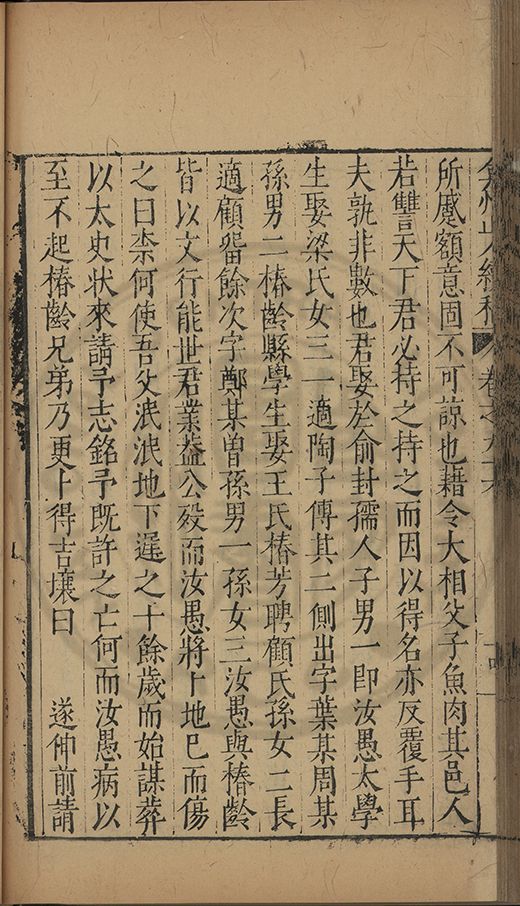 弇州山人續稿 卷之九十六 十四
所蹙額意固不可諒也藉令大相父子魚肉其邑人
若讐天下君必持之持之而因以得名亦反覆手耳
夫孰非數也君娶於俞封孺人子男一卽汝愚太學
生娶梁氏女三一適陶子傳其二側出字葉某周某
孫男二椿齡縣學生娶王氏椿芳聘顧氏孫女二長
適顧畱餘次字鄭某曾孫男一孫女三汝愚與椿齡
皆以文行能世君業葢公歿而汝愚將卜地巳而傷
之曰柰何使吾父泯泯地下遲之十餘歲而始謀葬
以太史狀來請予志銘予旣許之亡何而汝愚病以
至不起椿齡兄弟乃更卜得吉壤曰 遂仲前請